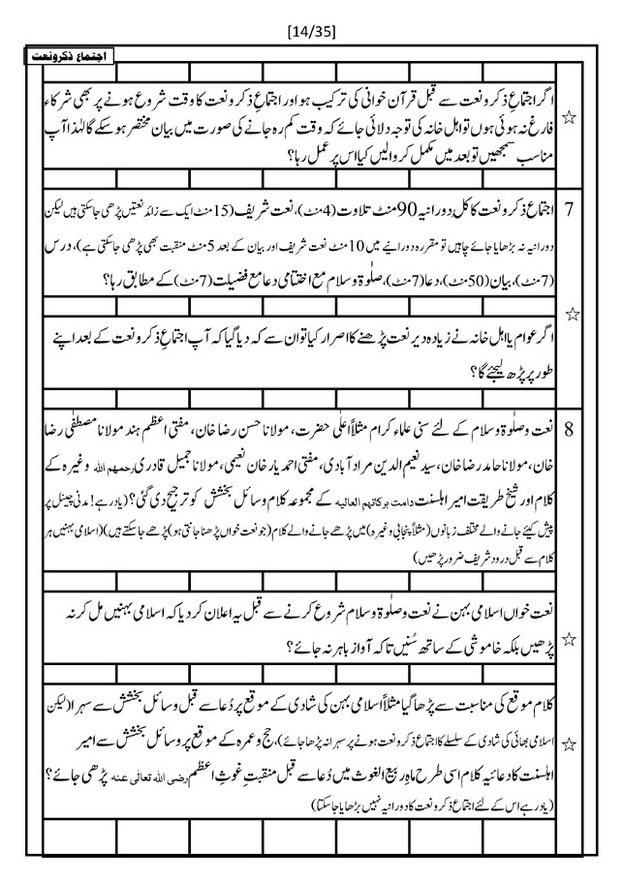 [14/35]
اجتماع ذکرونعت
اگر اجتماعِ ذکرونعت سے قبل قرآن خوانی کی ترکیب ہو اور اجتماعِ ذکرونعت کا وقت شروع ہونے پر بھی شرکاء
☆
فارغ نہ ہوئی ہوں تو اہل خانہ کی توجہ دلائی جائے کہ وقت کم رہ جانے کی صورت میں بیان مختصر ہو سکے گا لہٰذا آپ
مناسب سمجھیں تو بعد میں مکمل کروالیں کیا اس پر عمل رہا؟
7 اجتماعِ ذکرونعت کا کل دورانیہ 90 منٹ تلاوت (4 منٹ)، نعت شریف (15 منٹ ایک سے زائد نعتیں پڑھی جاسکتی ہیں لیکن
دورانیہ نہ بڑھایا جائے چاہیں تو مقررہ دورانیے میں 10 منٹ نعت شریف اور بیان کے بعد 5 منٹ منقبت بھی پڑھی جاسکتی ہے)، درس
(7 منٹ)، بیان (50 منٹ)، دعا (7 منٹ)، صلٰوۃ وسلام مع اختتامی دعا مع فضیلت (7 منٹ) کے مطابق رہا؟
☆
اگر عوام یا اہل خانہ نے زیادہ دیر نعت پڑھنے کا اصرار کیا تو ان سے کہہ دیا گیا کہ آپ اجتماعِ ذکرونعت کے بعد اپنے
طور پر پڑھ لیجئے گا؟
8 نعت وصلٰوۃ وسلام کے لئے سنی علماء کرام مثلاً اعلٰی حضرت، مولانا حسن رضا خان، مفتی اعظم ہند مولانا مصطفٰی رضا
خان، مولانا حامد رضا خان، سید نعیم الدین مراد آبادی، مفتی احمد یار خان نعیمی، مولانا جمیل قادری رحمھم اللہ وغیرہ کے
کلام اور شیخ طریقت امیر اہلسنت دامت برکاتھم العالیہ کے مجموعہ کلام وسائل بخشش کو ترجیح دی گئی؟ (یاد رہے! مدنی چینل پر
پیش کیئے جانے والے مختلف زبانوں (مثلاً پنجابی وغیرہ) میں پڑھے جانے والے کلام (جو نعت خواں پڑھنا جانتی ہو) پڑھے جاسکتے ہیں) (اسلامی بہنیں ہر
کلام سے قبل درود شریف ضرور پڑھیں)
نعت خواں اسلامی بہن نے نعت وصلٰوۃ وسلام شروع کرنے سے قبل یہ اعلان کردیا کہ اسلامی بہنیں مل کر نہ
☆
پڑھیں بلکہ خاموشی کے ساتھ سُنیں تاکہ آواز باہر نہ جائے؟
کلام موقع کی مناسبت سے پڑھا گیا مثلاً اسلامی بہن کی شادی کے موقع پر دُعا سے قبل وسائل بخشش سے سہرا (لیکن
☆
اسلامی بھائی کی شادی کے سلسلے کا اجتماع ذکرونعت ہونے پر سہرا نہ پڑھا جائے)، حج وعمرہ کے موقع پر وسائل بخشش سے امیر
اہلسنت کا دعائیہ کلام اسی طرح ماہِ ربیع الغوث میں دُعا سے قبل منقبتِ غوثِ اعظم رضی اللہ تعالی عنہ پڑھی جائے؟
(یاد رہے اس کے لئے اجتماع ذکرونعت کا دورانیہ نہیں بڑھایا جاسکتا)